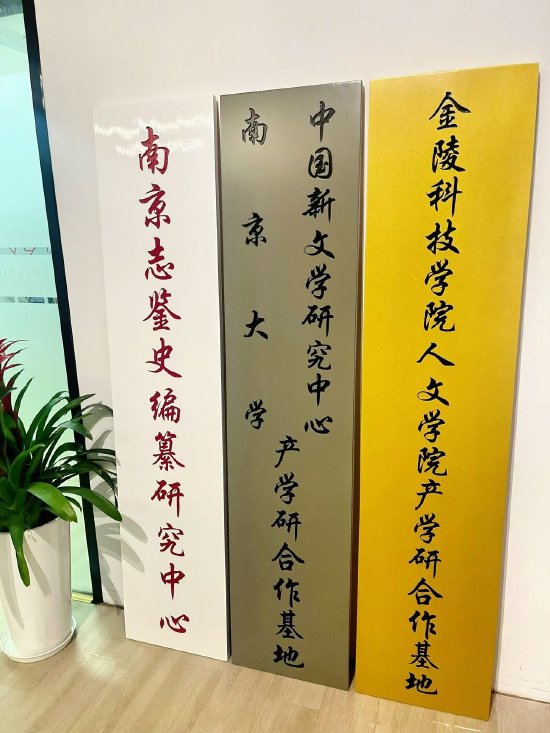 南京志鉴史编纂研究中心
南京大学
中国新文学研究中心
产学研合作基地
金陵科技学院人文学院产学研合作基地